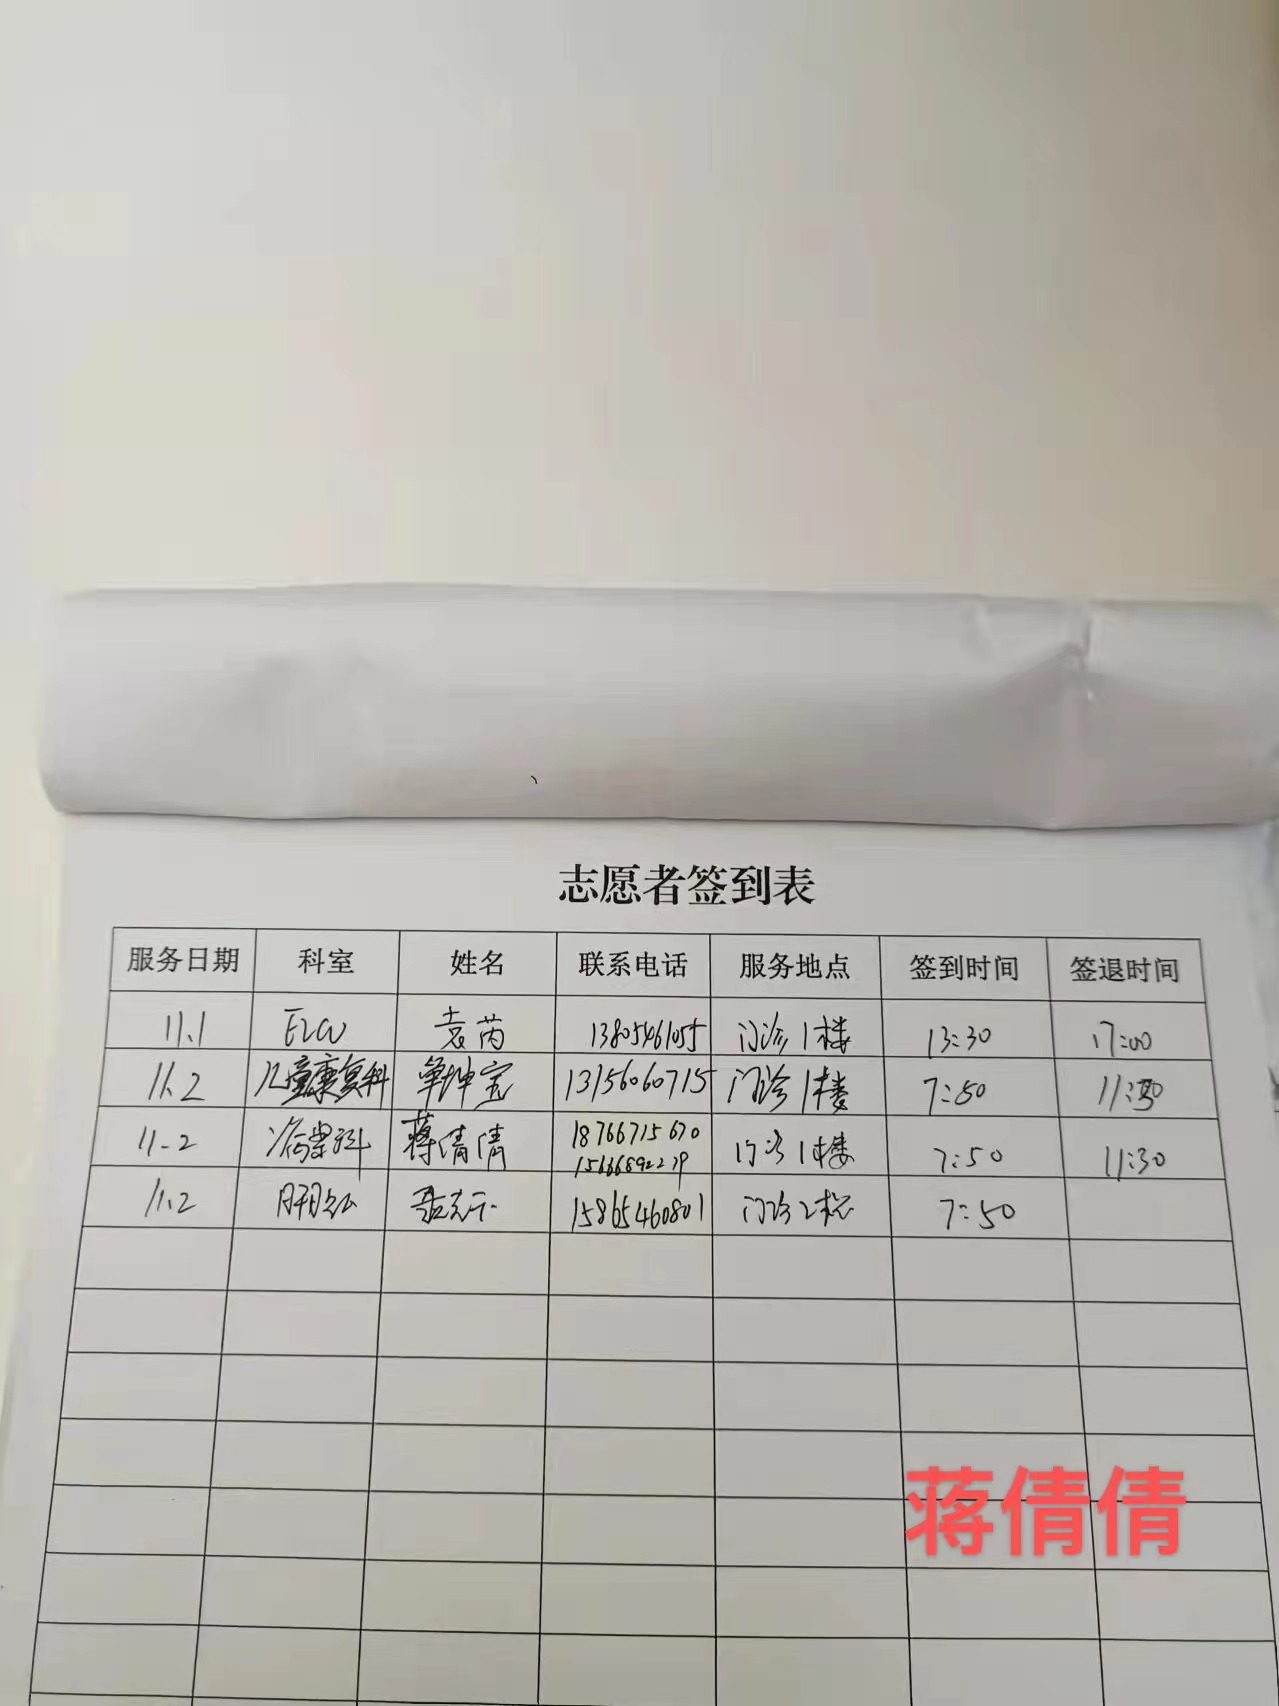 志愿者签到表
服务日期 科室 姓名 联系电话 服务地点 签到时间 签退时间
11.1 袁芮 13805461055 门诊1楼 13:30 17:00
11.2 儿童康复科 单坤宝 13156060715 门诊1楼 7:50 11:30
11.2 病案科 蒋倩倩 18766715670 门诊1楼 7:50 11:30
11.2 15865460801 门诊2楼 7:50
蒋倩倩